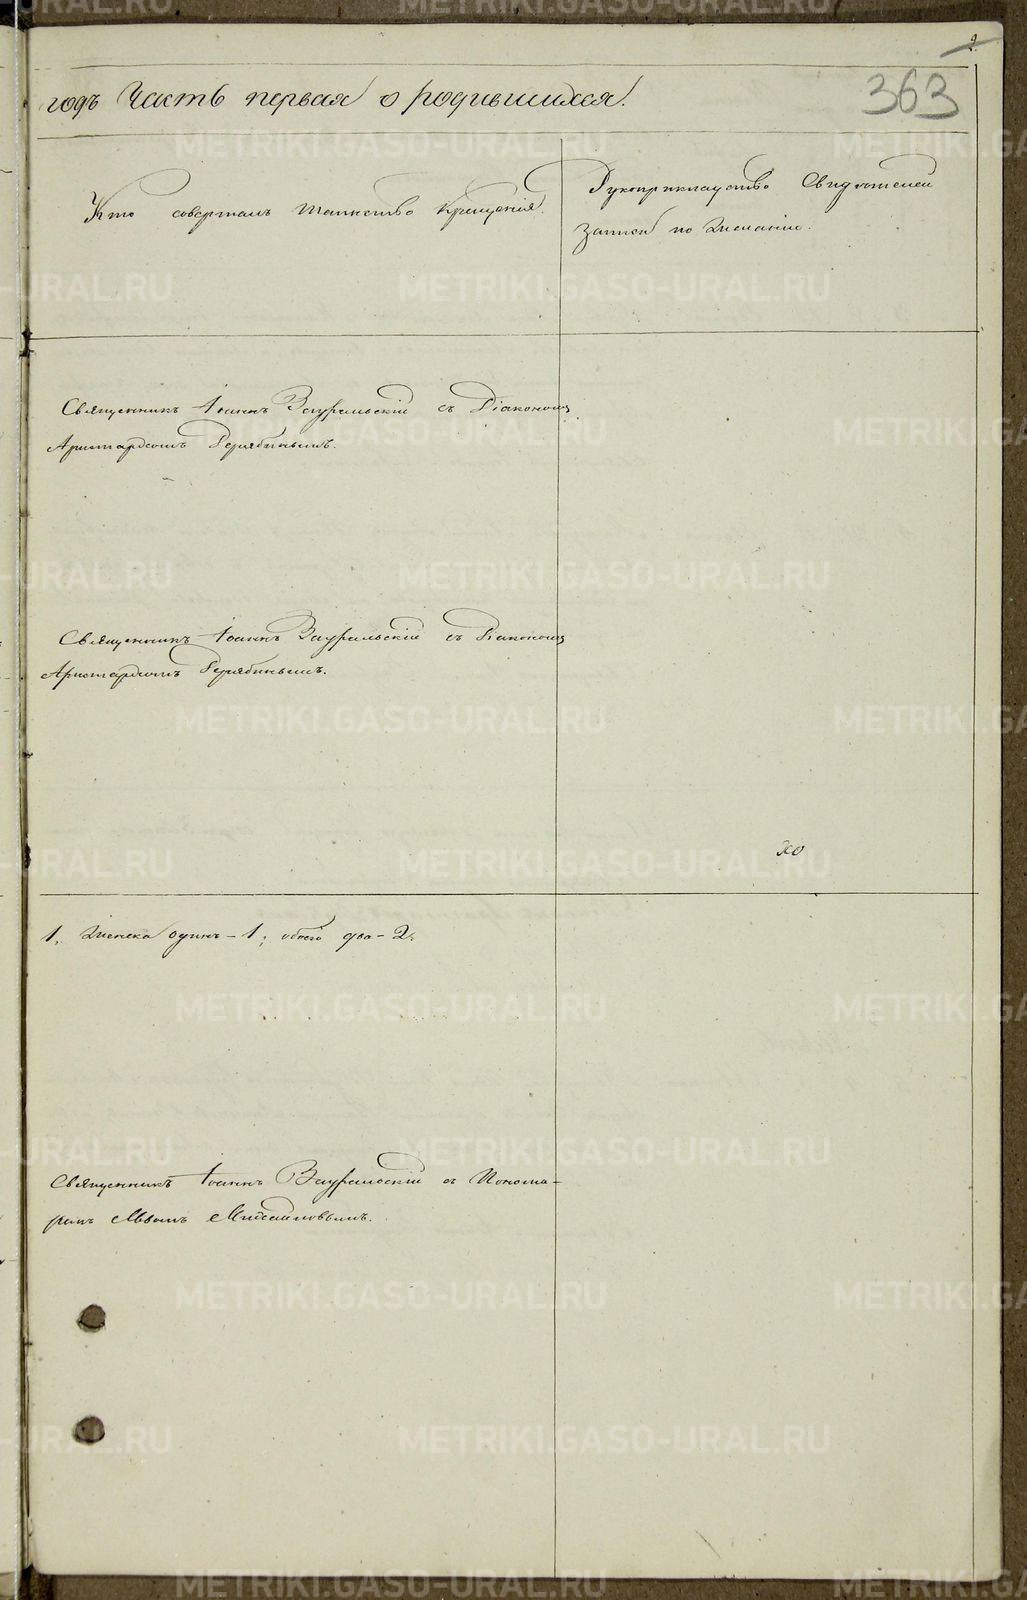 2
363
годъ Часть первая о родившихся.
Кто совершалъ таинство крещенія.
Рукоприкладство свидѣтелей
записи по желанію.
Священникъ Іоаннъ Зауральскій съ Діакономъ
Аристархомъ Серябинымъ.
Священникъ Іоаннъ Зауральскій съ Діакономъ
Аристархомъ Серябинымъ.
1, женска одинъ – 1; обоего два – 2.
Священникъ Іоаннъ Зауральскій съ Понома-
ремъ Михайловымъ.
METRIKI.GASO-URAL.RU